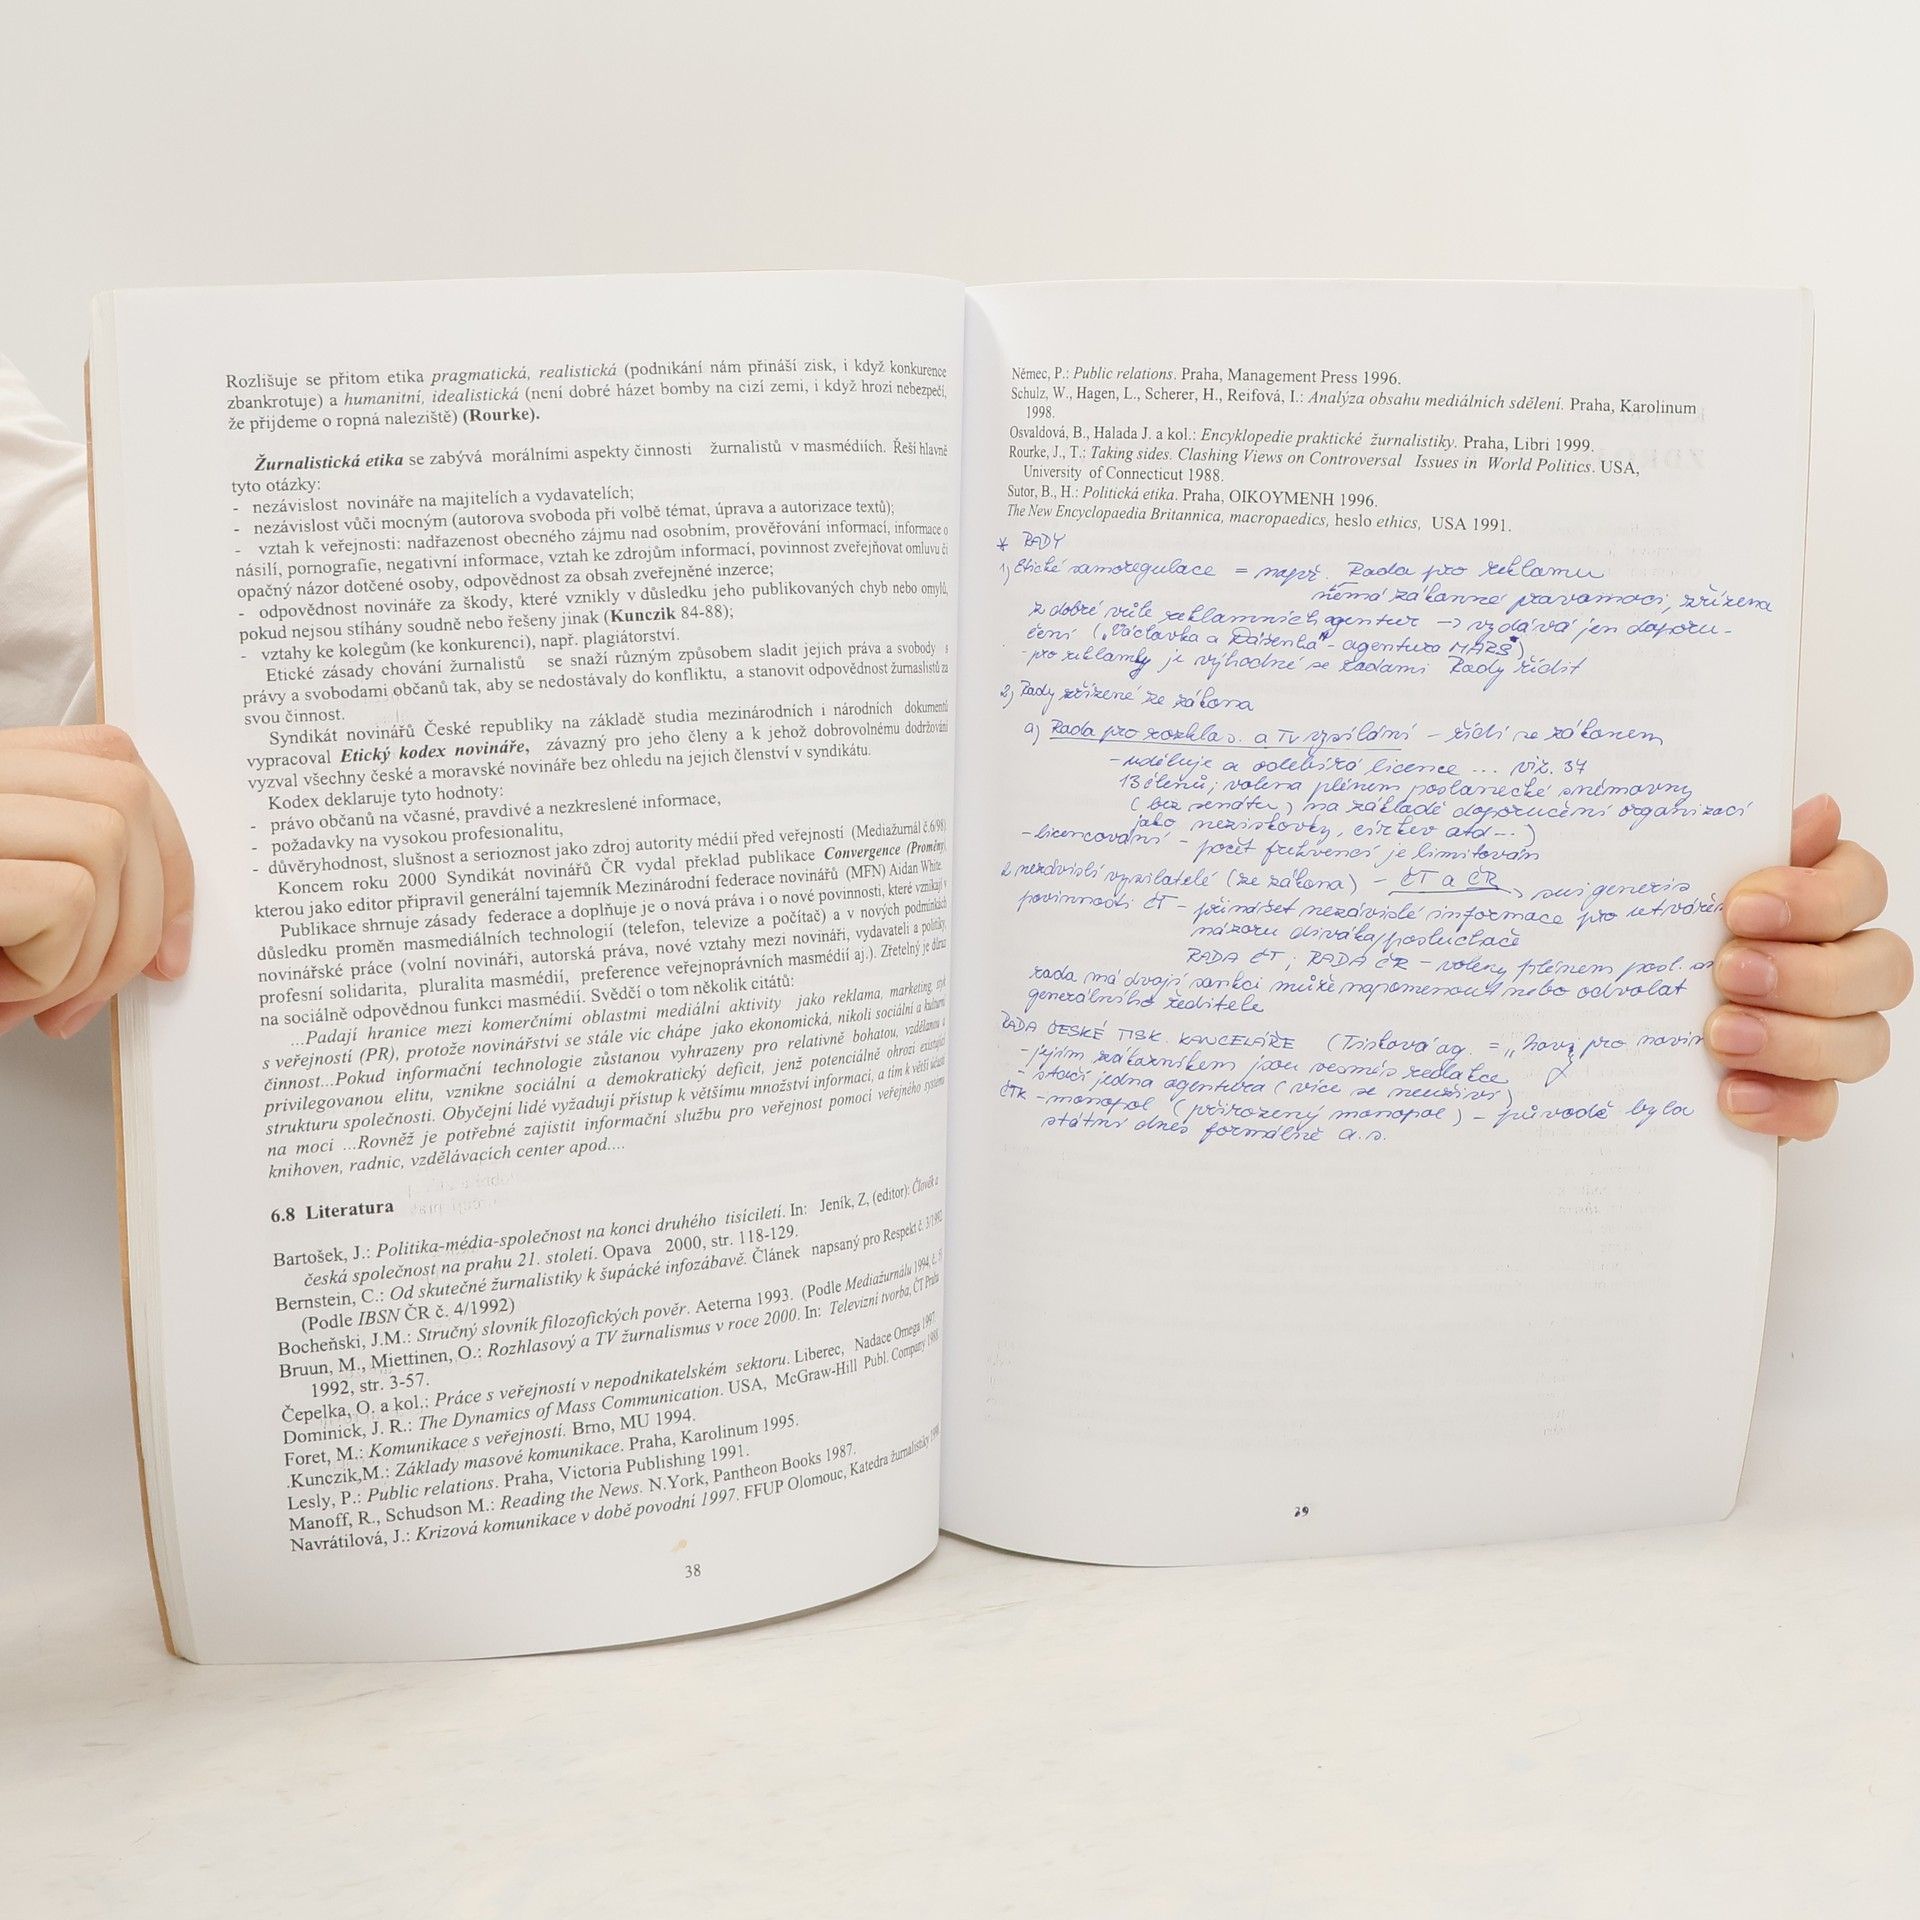 Rozlišuje se přitom etika pragmatická, realistická (podnikání nám přináší zisk, i když konkurence
zbankrotuje) a humanitní, idealistická (není dobré házet bomby na cizí zemi, i když hrozi nebezpečí,
že přijdeme o ropná naleziště) (Rourke).
Žurnalistická etika se zabývá morálními aspekty činnosti žurnalistů v masmédiích. Řeší hlavně
tyto otázky:
- nezávislost novináře na majitelích a vydavatelích;
- nezávislost vůči mocným (autorova svoboda při volbě témat, úprava a autorizace textů);
- vztah k veřejnosti: nadřazenost obecného zájmu nad osobním, prověřování informací, informace o
násilí, pornografie, negativní informace, vztah ke zdrojům informací, povinnost zveřejňovat omluvu či
opačný názor dotčené osoby, odpovědnost za obsah zveřejněné inzerce;
- odpovědnost novináře za škody, které vznikly v důsledku jeho publikovaných chyb nebo omylů,
pokud nejsou stíhány soudně nebo řešeny jinak (Kunczik 84-88);
- vztahy ke kolegům (ke konkurenci), např. plagiátorství.
Etické zásady chování žurnalistů se snaží různým způsobem sladit jejich práva a svobody s
právy a svobodami občanů tak, aby se nedostávaly do konfliktu, a stanovit odpovědnost žurnaslistů za
svou činnost.
Syndikát novinářů České republiky na základě studia mezinárodních i národních dokumentů
vypracoval Etický kodex novináře, závazný pro jeho členy a k jehož dobrovolnému dodržování
vyzval všechny české a moravské novináře bez ohledu na jejich členství v syndikátu.
Kodex deklaruje tyto hodnoty:
- právo občanů na včasné, pravdivé a nezkreslené informace,
- požadavky na vysokou profesionalitu,
- důvěryhodnost, slušnost a serioznost jako zdroj autority médií před veřejností (Mediažurnál č.6/98).
Koncem roku 2000 Syndikát novinářů ČR vydal překlad publikace Convergence (Proměny),
kterou jako editor připravil generální tajemník Mezinárodní federace novinářů (MFN) Aidan White.
Publikace shrnuje zásady federace a doplňuje je o nová práva i o nové povinnosti, které vznikají v
důsledku proměn masmediálních technologií (telefon, televize a počítač) a v nových podmínkách
novinářské práce (volní novináři, autorská práva, nové vztahy mezi novináři, vydavateli a politiky,
profesní solidarita, pluralita masmédií, preference veřejnoprávních masmédií aj.). Zřetelný je důraz
na sociálně odpovědnou funkci masmédií. Svědčí o tom několik citátů:
...Padají hranice mezi komerčními oblastmi mediální aktivity jako reklama, marketing, styk
s veřejností (PR), protože novinářství se stále víc chápe jako ekonomická, nikoli sociální a kulturní
činnost...Pokud informační technologie zůstanou vyhrazeny pro relativně bohatou, vzdělanou a
privilegovanou elitu, vznikne sociální a demokratický deficit, jenž potenciálně ohrozi existující
strukturu společnosti. Obyčejní lidé vyžadují přístup k většímu množství informací, a tím k větší účasti
na moci ...Rovněž je potřebné zajistit informační službu pro veřejnost pomocí veřejného systému
knihoven, radnic, vzdělávacích center apod....
6.8 Literatura
Bartošek, J.: Politika-média-společnost na konci druhého tisíciletí. In: Jeník, Z, (editor): Člověk a
česká společnost na prahu 21. století. Opava 2000, str. 118-129.
Bernstein, C.: Od skutečné žurnalistiky k šupácké infozábavě. Článek napsaný pro Respekt č. 3/1992
(Podle IBSN ČR č. 4/1992)
Bocheňski, J.M.: Stručný slovník filozofických pověr. Aeterna 1993. (Podle Mediažurnálu 1994, č. 5)
Bruun, M., Miettinen, O.: Rozhlasový a TV žurnalismus v roce 2000. In: Televizní tvorba, ČT Praha
1992, str. 3-57.
Čepelka, O. a kol.: Práce s veřejností v nepodnikatelském sektoru. Liberec, Nadace Omega 1997.
Dominick, J. R.: The Dynamics of Mass Communication. USA, McGraw-Hill Publ. Company 1988.
Foret, M.: Komunikace s veřejností. Brno, MU 1994.
.Kunczik,M.: Základy masové komunikace. Praha, Karolinum 1995.
Lesly, P.: Public relations. Praha, Victoria Publishing 1991.
Manoff, R., Schudson M.: Reading the News. N.York, Pantheon Books 1987.
Navrátilová, J.: Krizová komunikace v době povodní 1997. FFUP Olomouc, Katedra žurnalistiky 1998.
38
Němec, P.: Public relations. Praha, Management Press 1996.
Schulz, W., Hagen, L., Scherer, H., Reifová, I.: Analýza obsahu mediálních sdělení. Praha, Karolinum
1998.
Osvaldová, B., Halada J. a kol.: Encyklopedie praktické žurnalistiky. Praha, Libri 1999.
Rourke, J., T.: Taking sides. Clashing Views on Controversal Issues in World Politics. USA,
University of Connecticut 1988.
Sutor, B., H.: Politická etika. Praha, OIKOYMENH 1996.
The New Encyclopaedia Britannica, macropaedics, heslo ethics, USA 1991.
* RADY
1) Etické samoregulace = např. Rada pro reklamu
nemá zákonné pravomoci, zřízena
z dobré vůle reklamních agentur → vydává jen doporu-
čení („Václavka a Dášenka" - agentura MARS)
- pro reklamky je výhodné se radami Rady řídit
2) Rady zřízené ze zákona
a) Rada pro rozhlas. a TV vysílání - řídí se zákonem
- uděluje a odebírá licence ... viz. 37
13 členů; volena plénem poslanecké sněmovny
(bez senátu) na základě doporučení organizací
jako neziskovky, církev atd...)
- licencování - počet frekvencí je limitován
2 nezávislí vysilatelé (ze zákona) - ČT a ČR, sui generis
povinnosti ČT - přinášet nezávislé informace pro utvářen
názoru diváka/posluchače
RADA ČT; RADA ČR - voleny plénem posl. sn
rada má dvojí sankci může napomenout nebo odvolat
generálního ředitele
RADA ČESKÉ TISK. KANCELÁŘE (Tisková ag. = „ pro novin
- jejím zákazníkem jsou vesměs redakce
- stačí jedna agentura (více se neuživí)
ČTK - monopol (přirozený monopol) - původě byla
státní dnes formálně a.s.
39